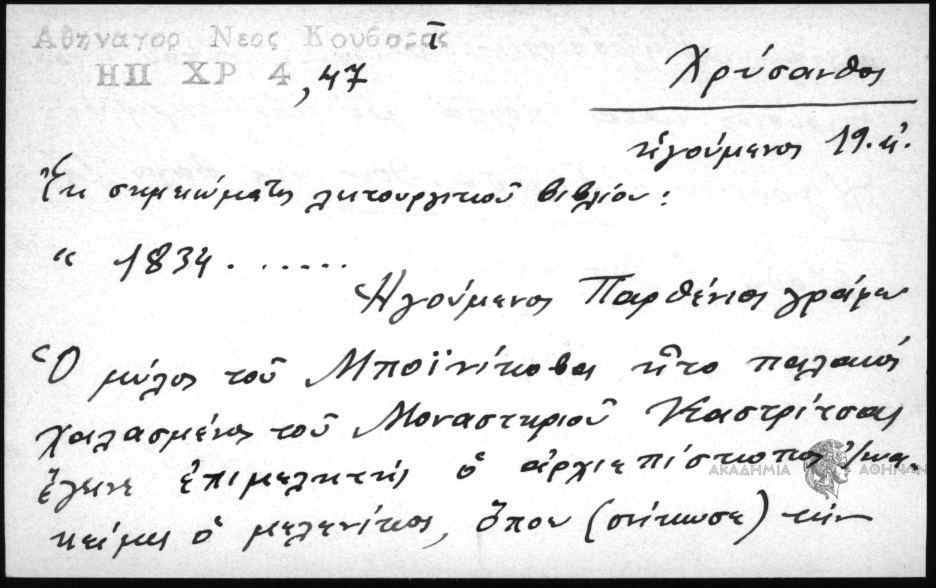 Αθηναγορ Νεος Κουβαρᾶς ῑ
ΗΠ ΧΡ 4 , 47
Χρύσανθος
ἡγούμενος 19. αἰ.
Ἐκ σημειώματος λειτουργικοῦ βιβλίου:
" 1834 . ......
Ἡγούμενος Παρθένιος γράφω
Ὁ μύλος τοῦ Μποϊνίκοβας ἦτο παλαιός
χαλασμένος τοῦ Μοναστηριοῦ Καστρίτσας
ἔγινε ἐπιμελητής ὁ ἀρχιεπίσκοπος Ἰωα-
κείμ ὁ μελενίκος, ὅπου (σήκωσε) τήν
ΑΚΑΔΗΜΙΑ ΑΘΗΝΩΝ